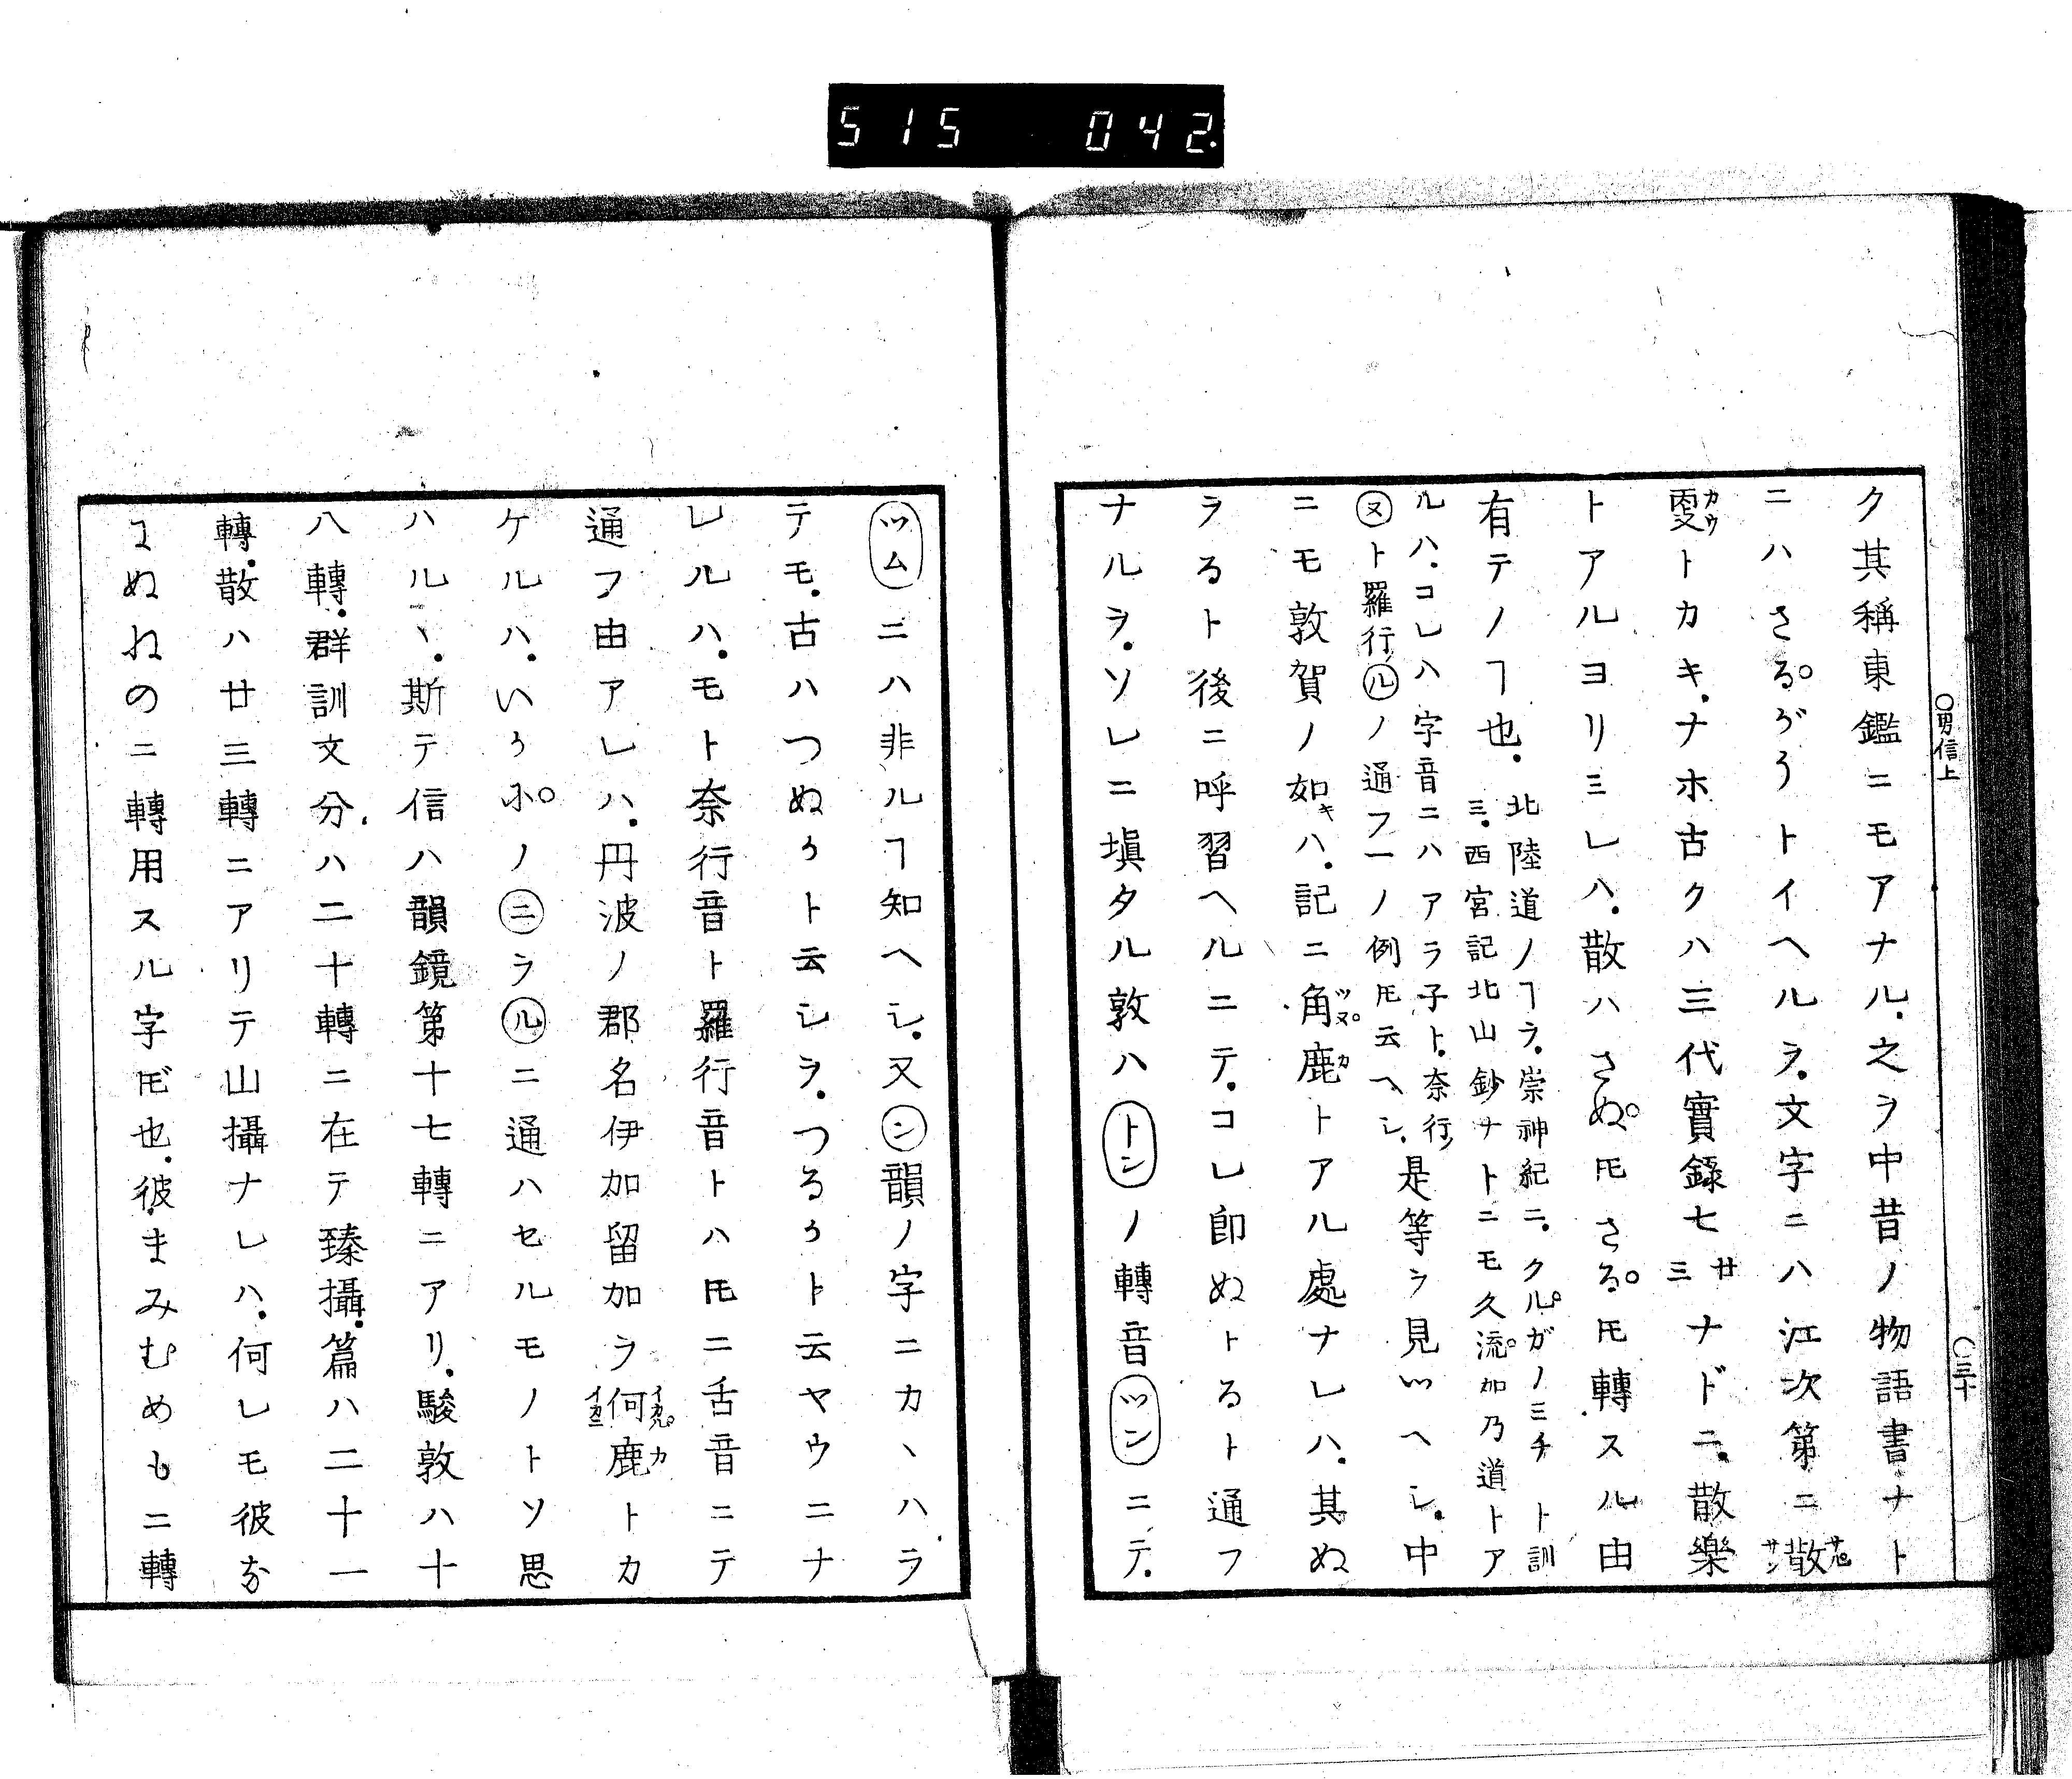 515 042.
○男信上
○三十
ク其稱東鑑ニモアナル.之ヲ中昔ノ物語書ナト
ニハさるがうトイヘルヲ.文字ニハ江次第ニ散サルサン
トカキ.ナホ古クハ三代實録七廿三ナドニ.散樂
トアルヨリミレハ.散ハさぬ𪜈さる𪜈轉スル由
有テノヿ也.北陸道ノヿヲ.崇神紀ニ.クルガノミチト訓
ミ.西宮記北山鈔ナトニモ久流加乃道トア
ルハ.コレハ字音ニハアラ子ト.奈行ノ
ヌト羅行ノルノ通フ一ノ例𪜈云ヘシ.是等ヲ見ツヘシ.中
ニモ敦賀ノ如キハ.記ニ角ツヌ鹿カトアル處ナレハ.其ぬ
ヲるト後ニ呼習ヘルニテ.コレ卽ぬトるト通フ
ナルヲ.ソレニ塡タル敦ハトンノ轉音ツンニテ.
ツムニハ非ルヿ知ヘシ.又ン韻ノ字ニカヽハラ
テモ.古ハつぬうト云シヲ.つるうト云ヤウニナ
レルハ.モト奈行音ト羅行音トハ𪜈ニ舌音ニテ
通フ由アレハ.円波ノ郡名伊加留加ヲ何イカルイカニ鹿カトカ
ケルハ.いうにノニヲルニ通ハセルモノトソ思
ハルヽ.斯テ信ハ韻鏡第十七轉ニアリ.駿敦ハ十
八轉.群訓文分ハ二十轉ニ在テ臻攝.篇ハ二十一
轉.散ハ廿三轉ニアリテ山攝ナレハ.何レモ彼な
にぬねのニ轉用スル字𪜈也.彼まみむめもニ轉